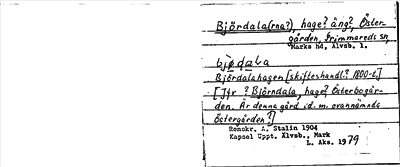 Björdala(rna?), hage? äng? Öster-
gården, Grimmareds sn,
Marks hd, Älvsb. l.
bjọ̈dạla
Björdalahagen [skifteshandl.? 1800-t.]
[Jfr ? Björndala, hage? Österbogår-
den. Är denna gård id. m. ovannämnda
Östergården?]
Renskr. A. Stalin 1904
Kapsel Uppt. Älvsb., Mark
L. Aks. 1979